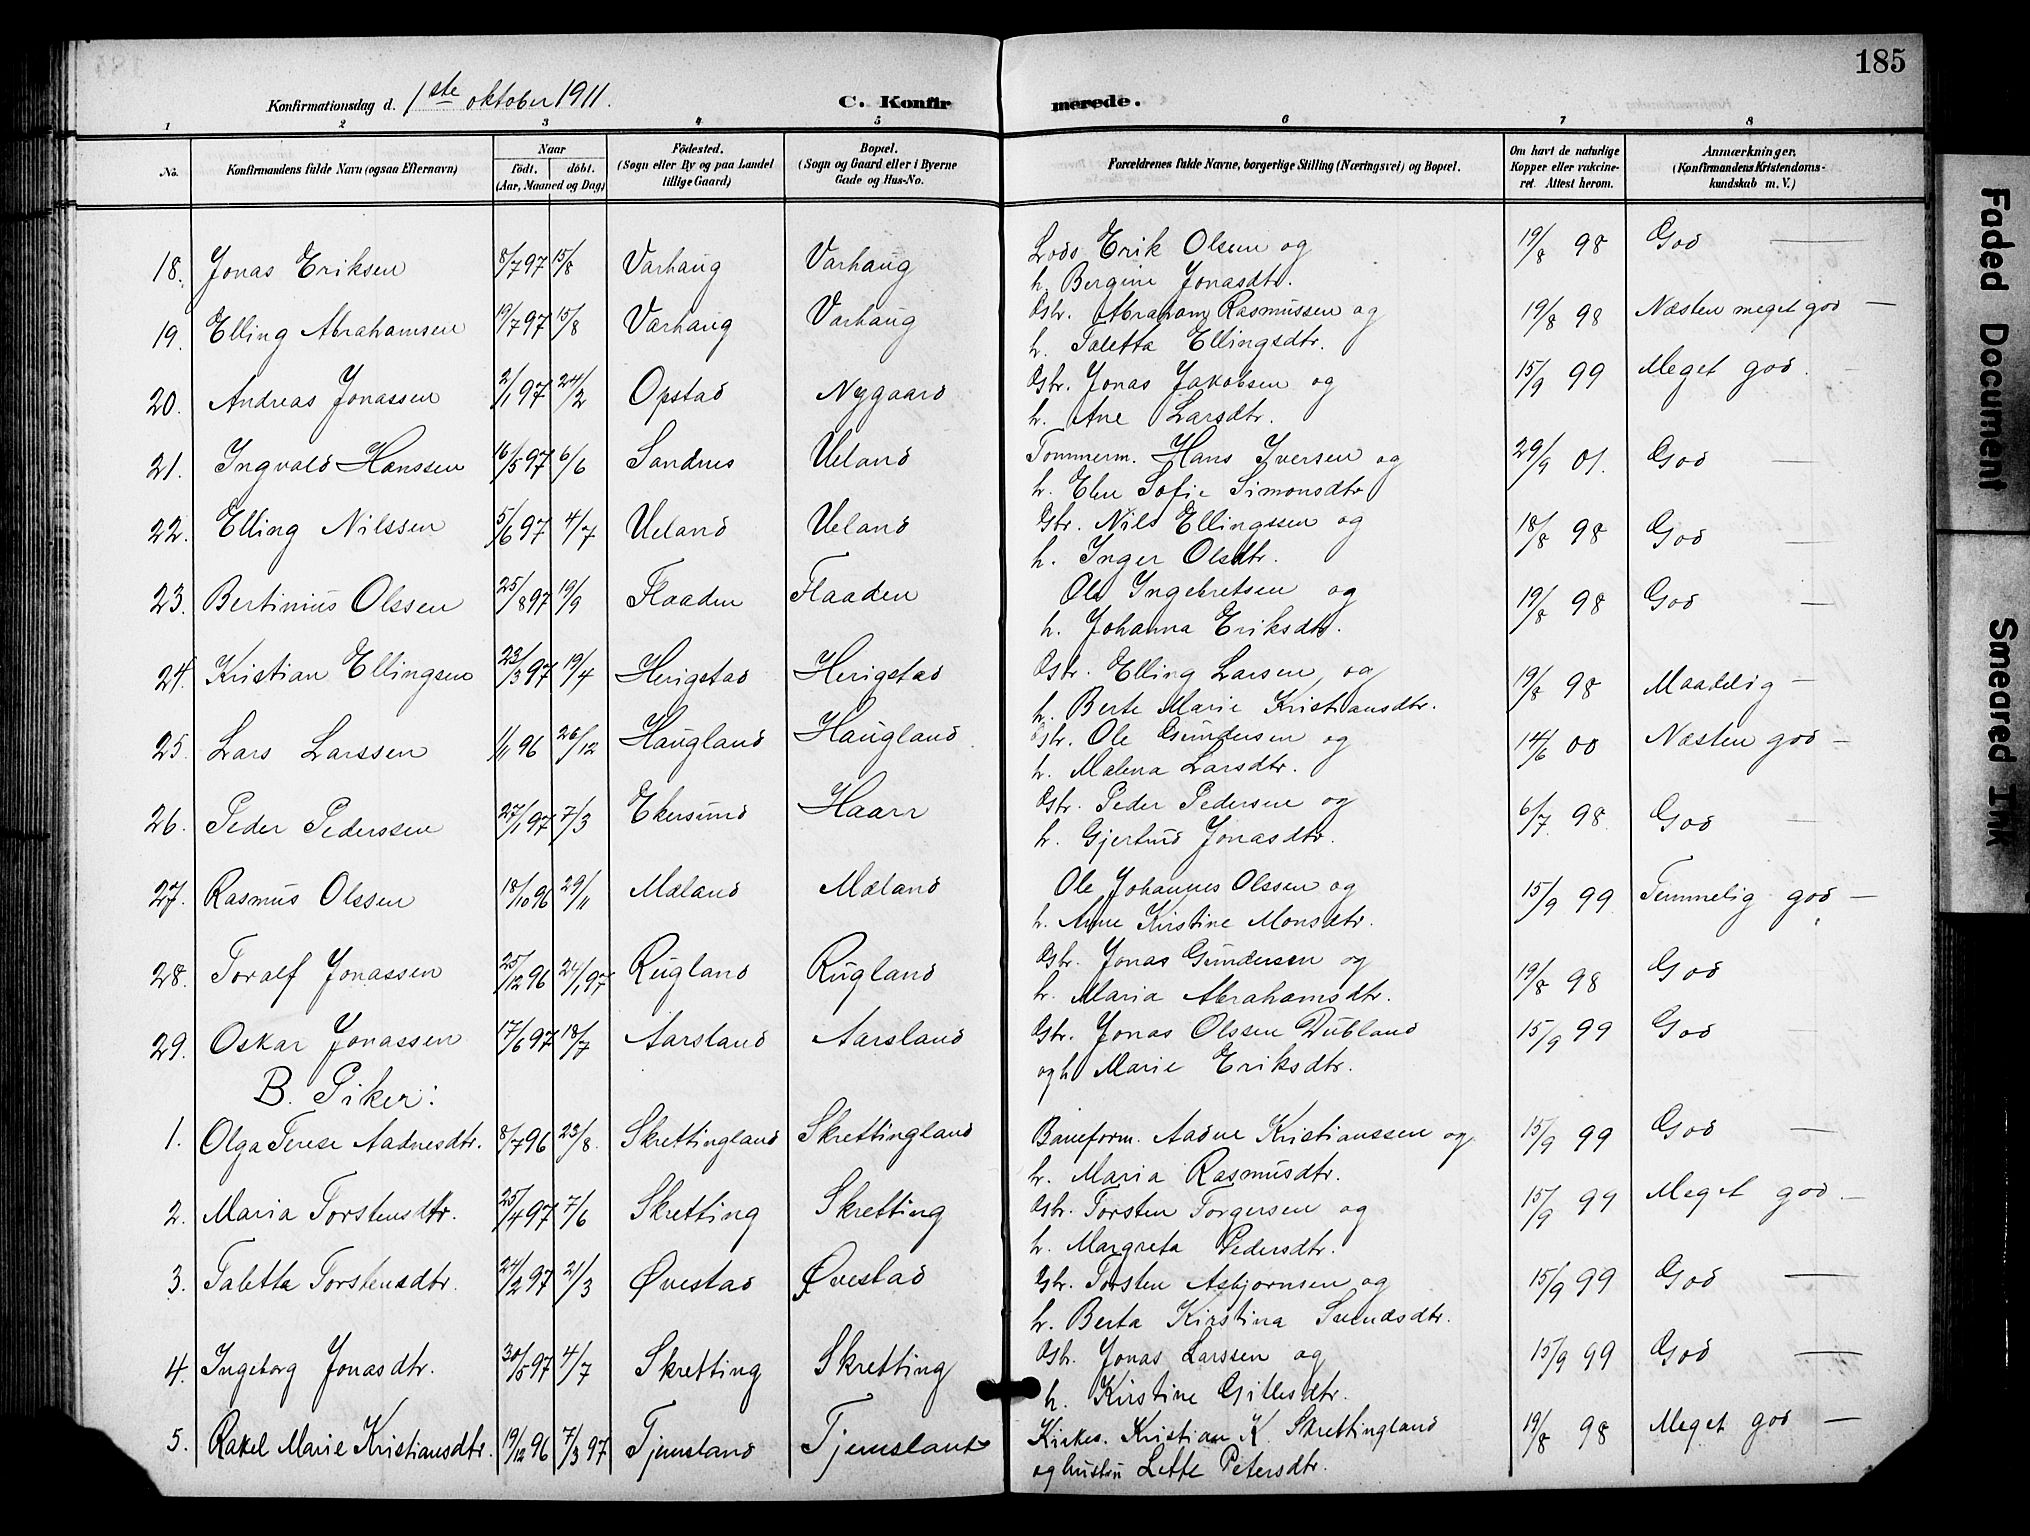 185
Konfirmationsdag d. 1ste oktober 1911. C. Konfirmerede.
1 2 3 4 5 6 7 8
No. Konfirmandens fulde Navn (ogsaa Efternavn) Naar født. døbt. (Aar, Maaned og Dag) Fødested. (Sogn eller By og paa Landet tillige Gaard) Bopæl. (Sogn og Gaard eller i Byerne Gade og Hus-No. Forældrenes fulde Navne, borgerlige Stilling (Næringsvei) og Bopæl. Om havt de naturlige Kopper eller vakcineret. Attest herom. Anmærkninger. (Konfirmandens Kristendomskundskab m. V.)
18. Jonas Eriksen 8/7 97 15/8 Varhaug Varhaug Lods Erik Olsen og 19/8 98 God —
h. Bergine Jonasdtr.
19. Elling Abrahamsen 19/7 97 15/8 Varhaug Varhaug Gbr. Abraham Rasmussen og 19/8 98 Næsten meget god —
h. Taletta Ellingsdtr.
20. Andreas Jonassen 2/1 97 24/2 Opstad Nygaard Gbr. Jonas Jakobsen og 15/9 99 Meget god. —
h. Ane Larsdtr.
21. Ingvald Hanssen 16/5 97 6/6 Sandnes Ueland Tømmerm. Hans Iversen og 29/9 01. God —
h. Elen Sofie Simonsdtr
22. Elling Nilssen 5/6 97 4/7 Ueland Ueland Gbr. Nils Ellingssen og 18/8 98 God —
h. Inger Olsdtr.
23. Bertinius Olssen 25/8 97 19/9 Flaaden Flaaden Ole Ingebretsen og 19/8 98 God —
h. Johanna Eriksdtr.
24. Kristian Ellingsen 23/3 97 19/4 Herigstad Herigstad Gbr. Elling Larsen og 19/8 98 Maadelig —
h. Berte Marie Kristiansdtr.
25. Lars Larssen 1/1 96 26/12 Haugland Haugland Gbr. Ole Gundersen og 14/6 00 Næsten god —
h. Malena Larsdtr.
26. Peder Pederssen 27/1 97 7/3 Ekersund Haarr Gbr. Peder Pedersen og 6/7 98. God —
h. Gjertrud Jonasdtr.
27. Rasmus Olssen 18/10 96 29/11 Mæland Mæland Ole Johannes Olssen og 15/9 99 Temmelig god —
h. Anne Kirstine Monsdtr.
28. Toralf Jonassen 25/12 96 24/1 97 Rugland Rugland Gbr. Jonas Gundersen og 19/8 98 God
h. Maria Abrahamsdtr.
29. Oskar Jonassen 17/6 97 18/7 Aarsland Aarsland Gbr. Jonas Olssen Dubland 15/9 99 God —
og h Marie Eriksdtr.
B. Piker:
1. Olga Terese Aadnesdtr. 8/7 96 23/8. Skrettingland Skrettingland Baneform. Aadne Kristianssen og 15/9 99 God —
h. Maria Rasmusdtr.
2. Maria Torstensdtr. 25/4 97 7/6 Skretting Skretting Gbr. Torsten Torgersen og 15/9 99 Meget god. —
h. Margreta Pedersdtr.
3. Taletta Torstensdtr. 24/2 97 21/3 Øvestad Øvestad Gbr. Torsten Asbjørnsen og 15/9 99 God —
h. Berta Kirstina Svendsdtr.
4. Ingeborg Jonasdtr. 30/5 97 4/7 Skretting Skretting Gbr. Jonas Larssen og 15/9 99 God —
h. Kirstine Gillesdtr.
5. Rakel Marie Kristiansdtr. 19/12 96 7/3 97 Tjemsland Tjemsland Kirkes. Kristian K. Skrettingland 19/8 98 Meget god —
og hustru Lette Petersdtr.
Faded Document
Smeared Ink